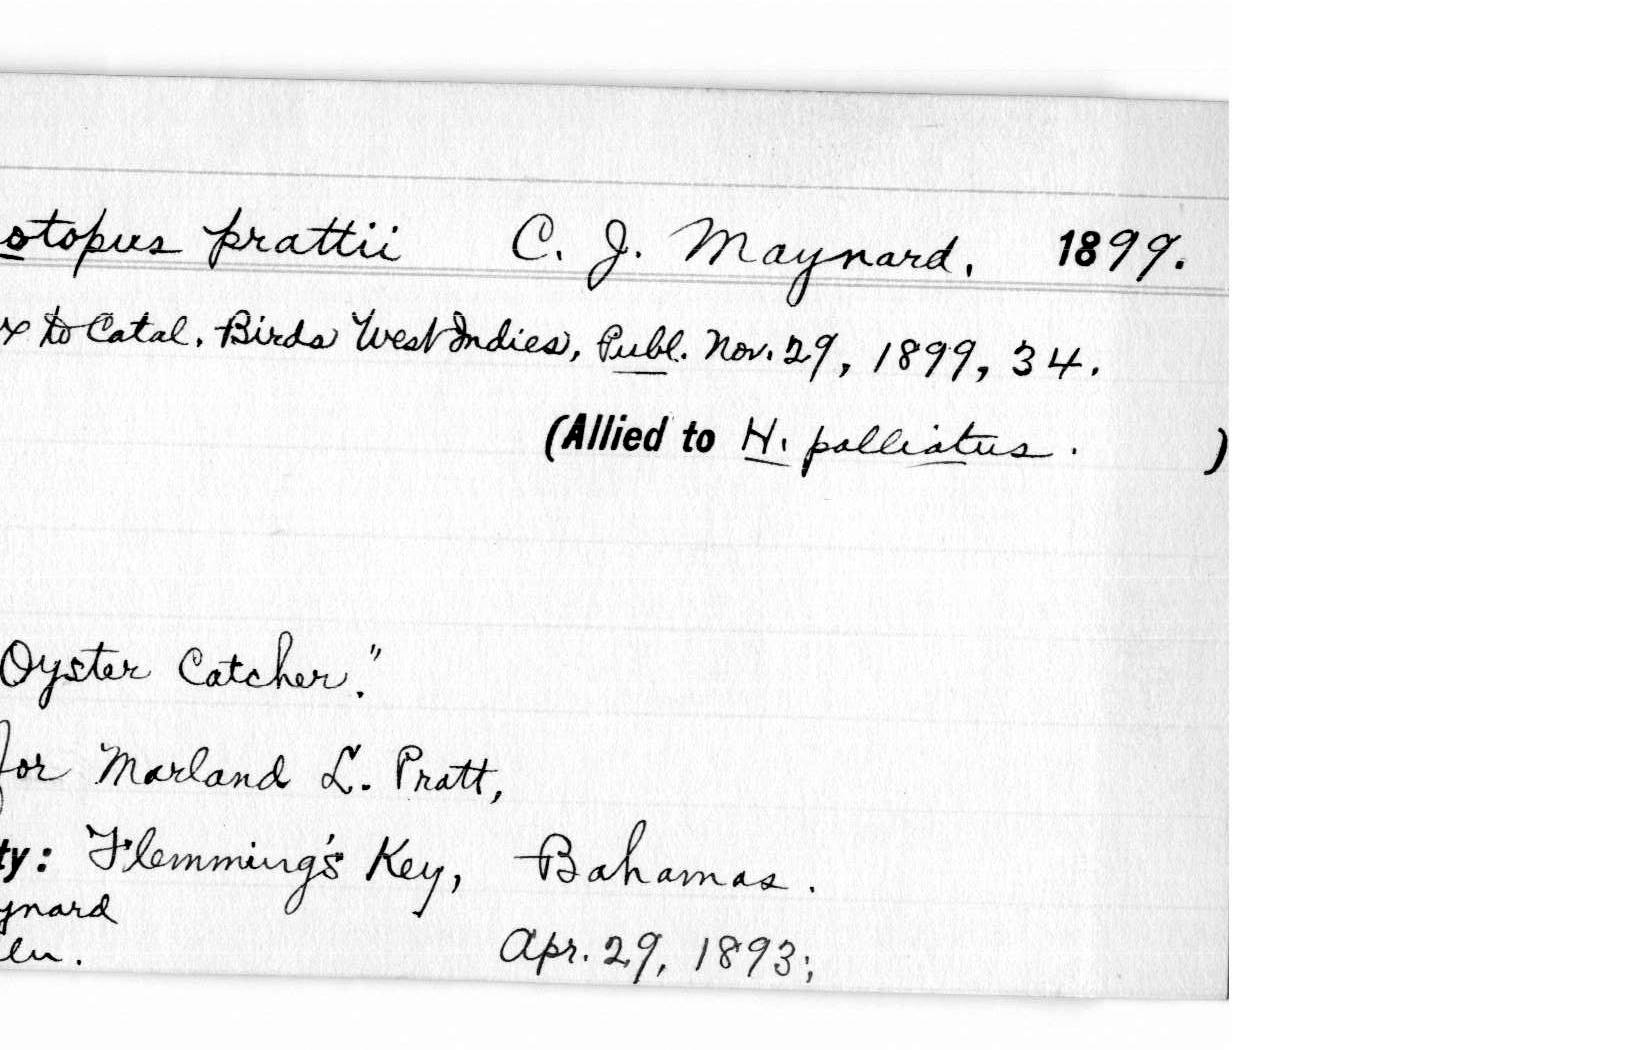 otopus prattii C. J. Maynard. 1899.
x to Catal. Birds West Indies, Publ. Nov. 29, 1899, 34.
(Allied to H. palliatus. )
Oyster Catcher."
for Marland L. Pratt,
ty: Flemming's Key, Bahamas.
ynard
Apr. 29, 1893;